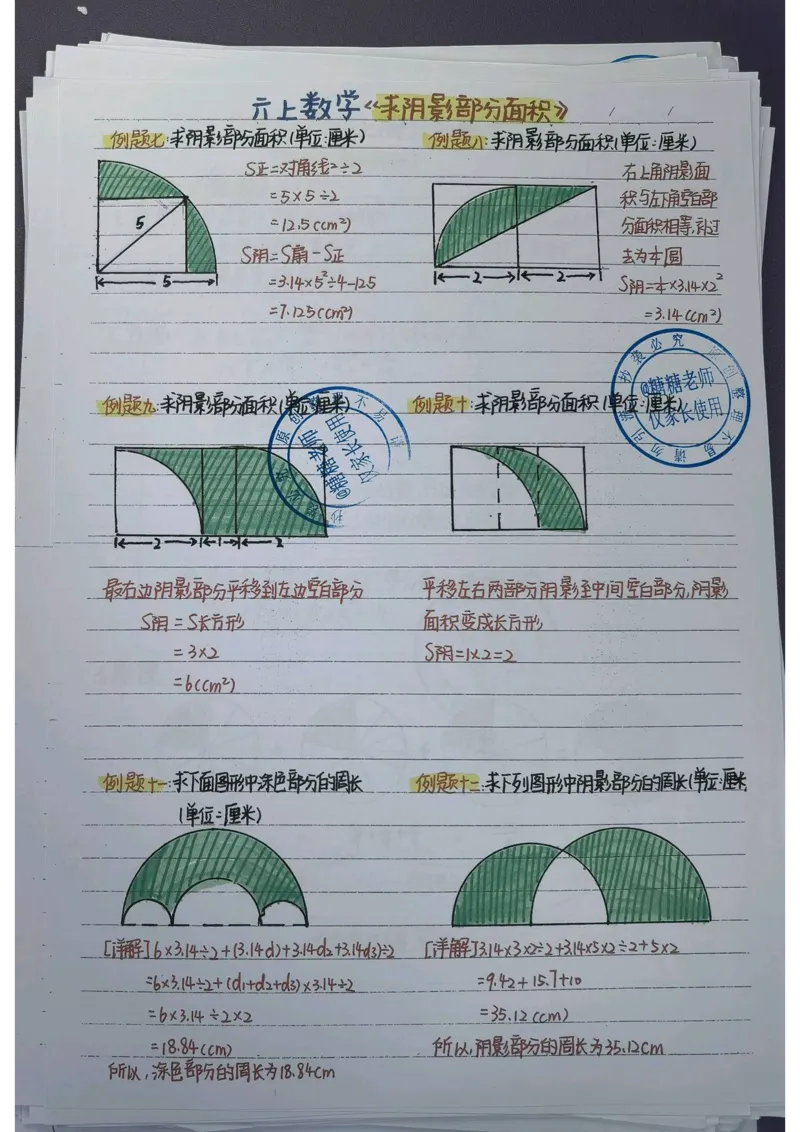 六上数学《求阴影部分面积》
例题七:求阴影部分面积(单位:厘米)
S正=对角线²÷2
=5×5÷2
=12.5(cm²)
S阴=S扇-S正
=3.14×5²÷4-12.5
=7.125(cm²)
5
5
例题八:求阴影部分面积(单位:厘米)
右上角阴影面
积与左下角空白部
分面积相等,补过
去为¼圆
S阴=¼×3.14×2²
=3.14(cm²)
2
2
例题九:求阴影部分面积(单位:厘米)
2
1
2
最右边阴影部分平移到左边空白部分
S阴=S长方形
=3×2
=6(cm²)
例题十:求阴影部分面积(单位:厘米)
平移左右两部分阴影至中间空白部分,阴影
面积变成长方形
S阴=1×2=2
@糖糖老师
仅家长使用
原创整理不易请勿引流抄袭必究
@糖糖老师
仅家长使用
例题十一:求下面图形中涂色部分的周长
(单位:厘米)
[详解]6×3.14÷2+(3.14d1+3.14d2+3.14d3)÷2
=6×3.14÷2+(d1+d2+d3)×3.14÷2
=6×3.14÷2×2
=18.84(cm)
所以,涂色部分的周长为18.84cm
例题十二:求下列图形中阴影部分的周长(单位:厘米
[详解]3.14×3×2÷2+3.14×5×2÷2+5×2
=9.42+15.7+10
=35.12(cm)
所以,阴影部分的周长为35.12cm